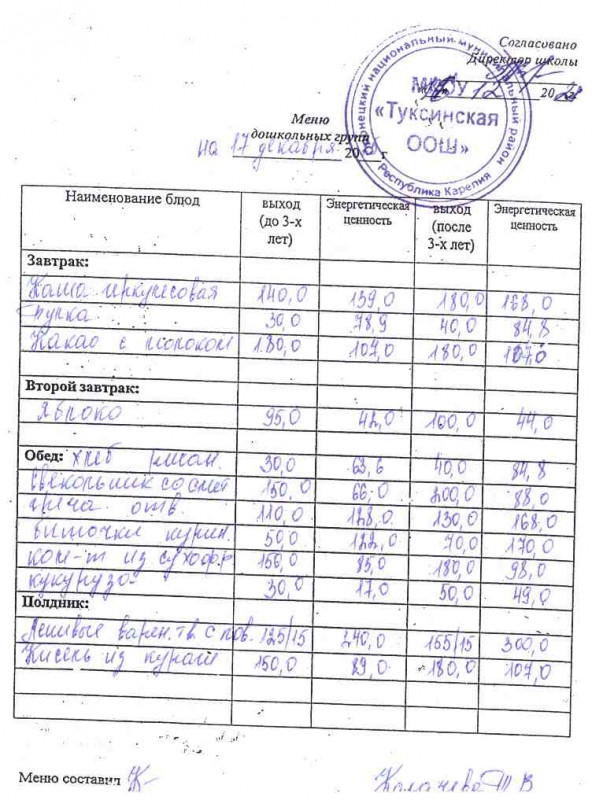 Согласовано
Директор школы
12 20
Олонецкий национальный муниципальный район
МКОУ
«Туксинская
ООШ»
Республика Карелия
Меню
дошкольных групп
на 17 декабря 20 г
Наименование блюд выход (до 3-х лет) Энергетическая ценность выход (после 3-х лет) Энергетическая ценность
Завтрак:
Каша геркулесовая 140,0 139,0 180,0 168,0
Булка 30,0 78,9 40,0 84,8
Какао с молоком 180,0 107,0 180,0 107,0
Второй завтрак:
Яблоко 95,0 42,0 100,0 44,0
Обед: хлеб ржан. 30,0 63,6 40,0 84,8
Свекольник со смет 150,0 66,0 200,0 88,0
Греча отв. 110,0 128,0 130,0 168,0
Биточки курин. 50,0 122,0 70,0 170,0
Ком-т из сухофр 150,0 85,0 180,0 98,0
кукуруза 30,0 17,0 50,0 49,0
Полдник:
Ленивые варен. тв. с пов. 125/15 240,0 155/15 300,0
Кисель из кураги 150,0 89,0 180,0 107,0
Меню составил